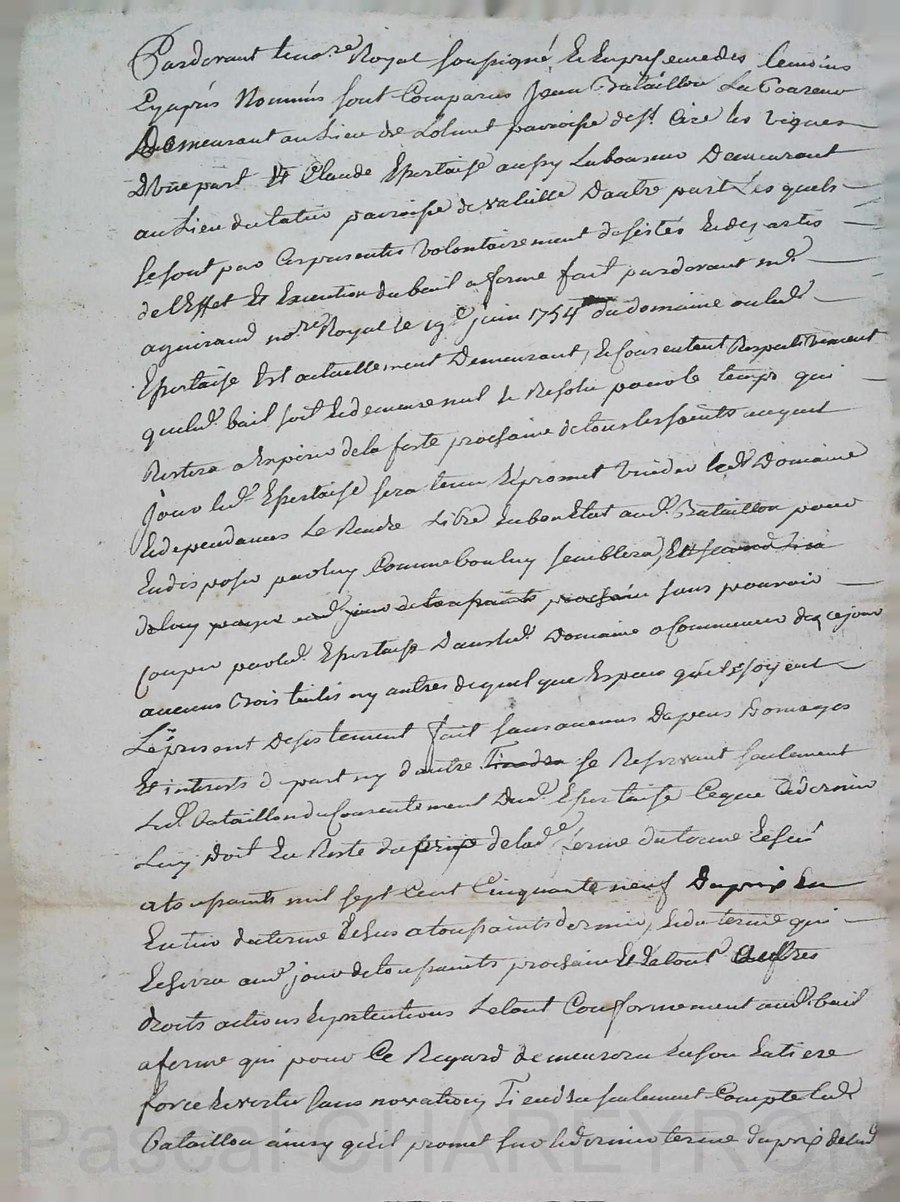 Pardevant le no.re Royal soussigné et En presence des temoins
Cy après Nommés sont Comparus Jean Bataillon Laboureur
Demeurant au Lieu de paroisse de st. Cire les vignes
D'une part Et Claude Epertaise aussy Laboureur Demeurant
au Lieu du paroisse de valeille D'autre part Lesquels
se sont par Ces presentes volontairement desistés
de l'Effet Et Execution du bail a ferme fait pardevant me
aguiraud no.re Royal le 19e juin 1754 du domaine ou led
Epertaise Est actuellement Demeurant, Et Consentent Respectivement
que led. bail soit Et demeure nul Et Resolu pour le temps qui
Restera a Expirer de la feste prochaine de tous les saints auquel
jour led. Epertaise sera tenu Et promet vuider led. Domaine
Et dependances Le Rendre Libre En bon Etat aud. Bataillon pour
En disposer par luy Comme bon luy semblera,
de luy payer aud. jour de toussaints prochain sans pouvoir
Couper par led. Epertaise Dans led. Domaine a Commencer des ce jour
aucuns Bois taillis ny autres de quel que Espece qu'ils soyent
Le present desistement fait sans aucuns Depens Domages
Et interests d. part ny d'autre se Reservant seulement
Led. Bataillon du Consentement dud. Epertaise Ce que Ce dernier
Luy Doit En Reste du prix de lad. ferme du terme Echu
a toussaints mil sept Cent Cinquante neuf Du prix En
Entier du terme Echu a toussaints dernier, Et du terme qui
Echerra aud. jour de toussaints prochain Et de tout autres
droits actions Et pretentions Le tout Conformement aud. bail
a ferme qui pour Ce Regard demeurera En son Entiere
force Et vertu sans novation, Tiendra seulement Compte led.
Bataillon ainsy qu'il promet sur le dernier terme du prix de lad
Pascal CHAREYRON